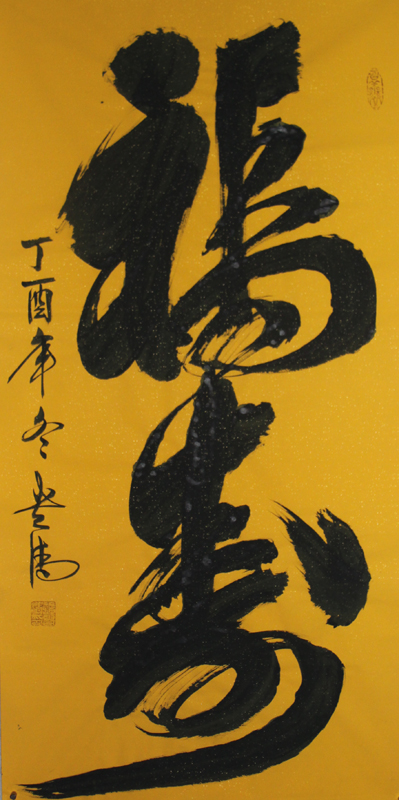 福寿
丁酉年冬